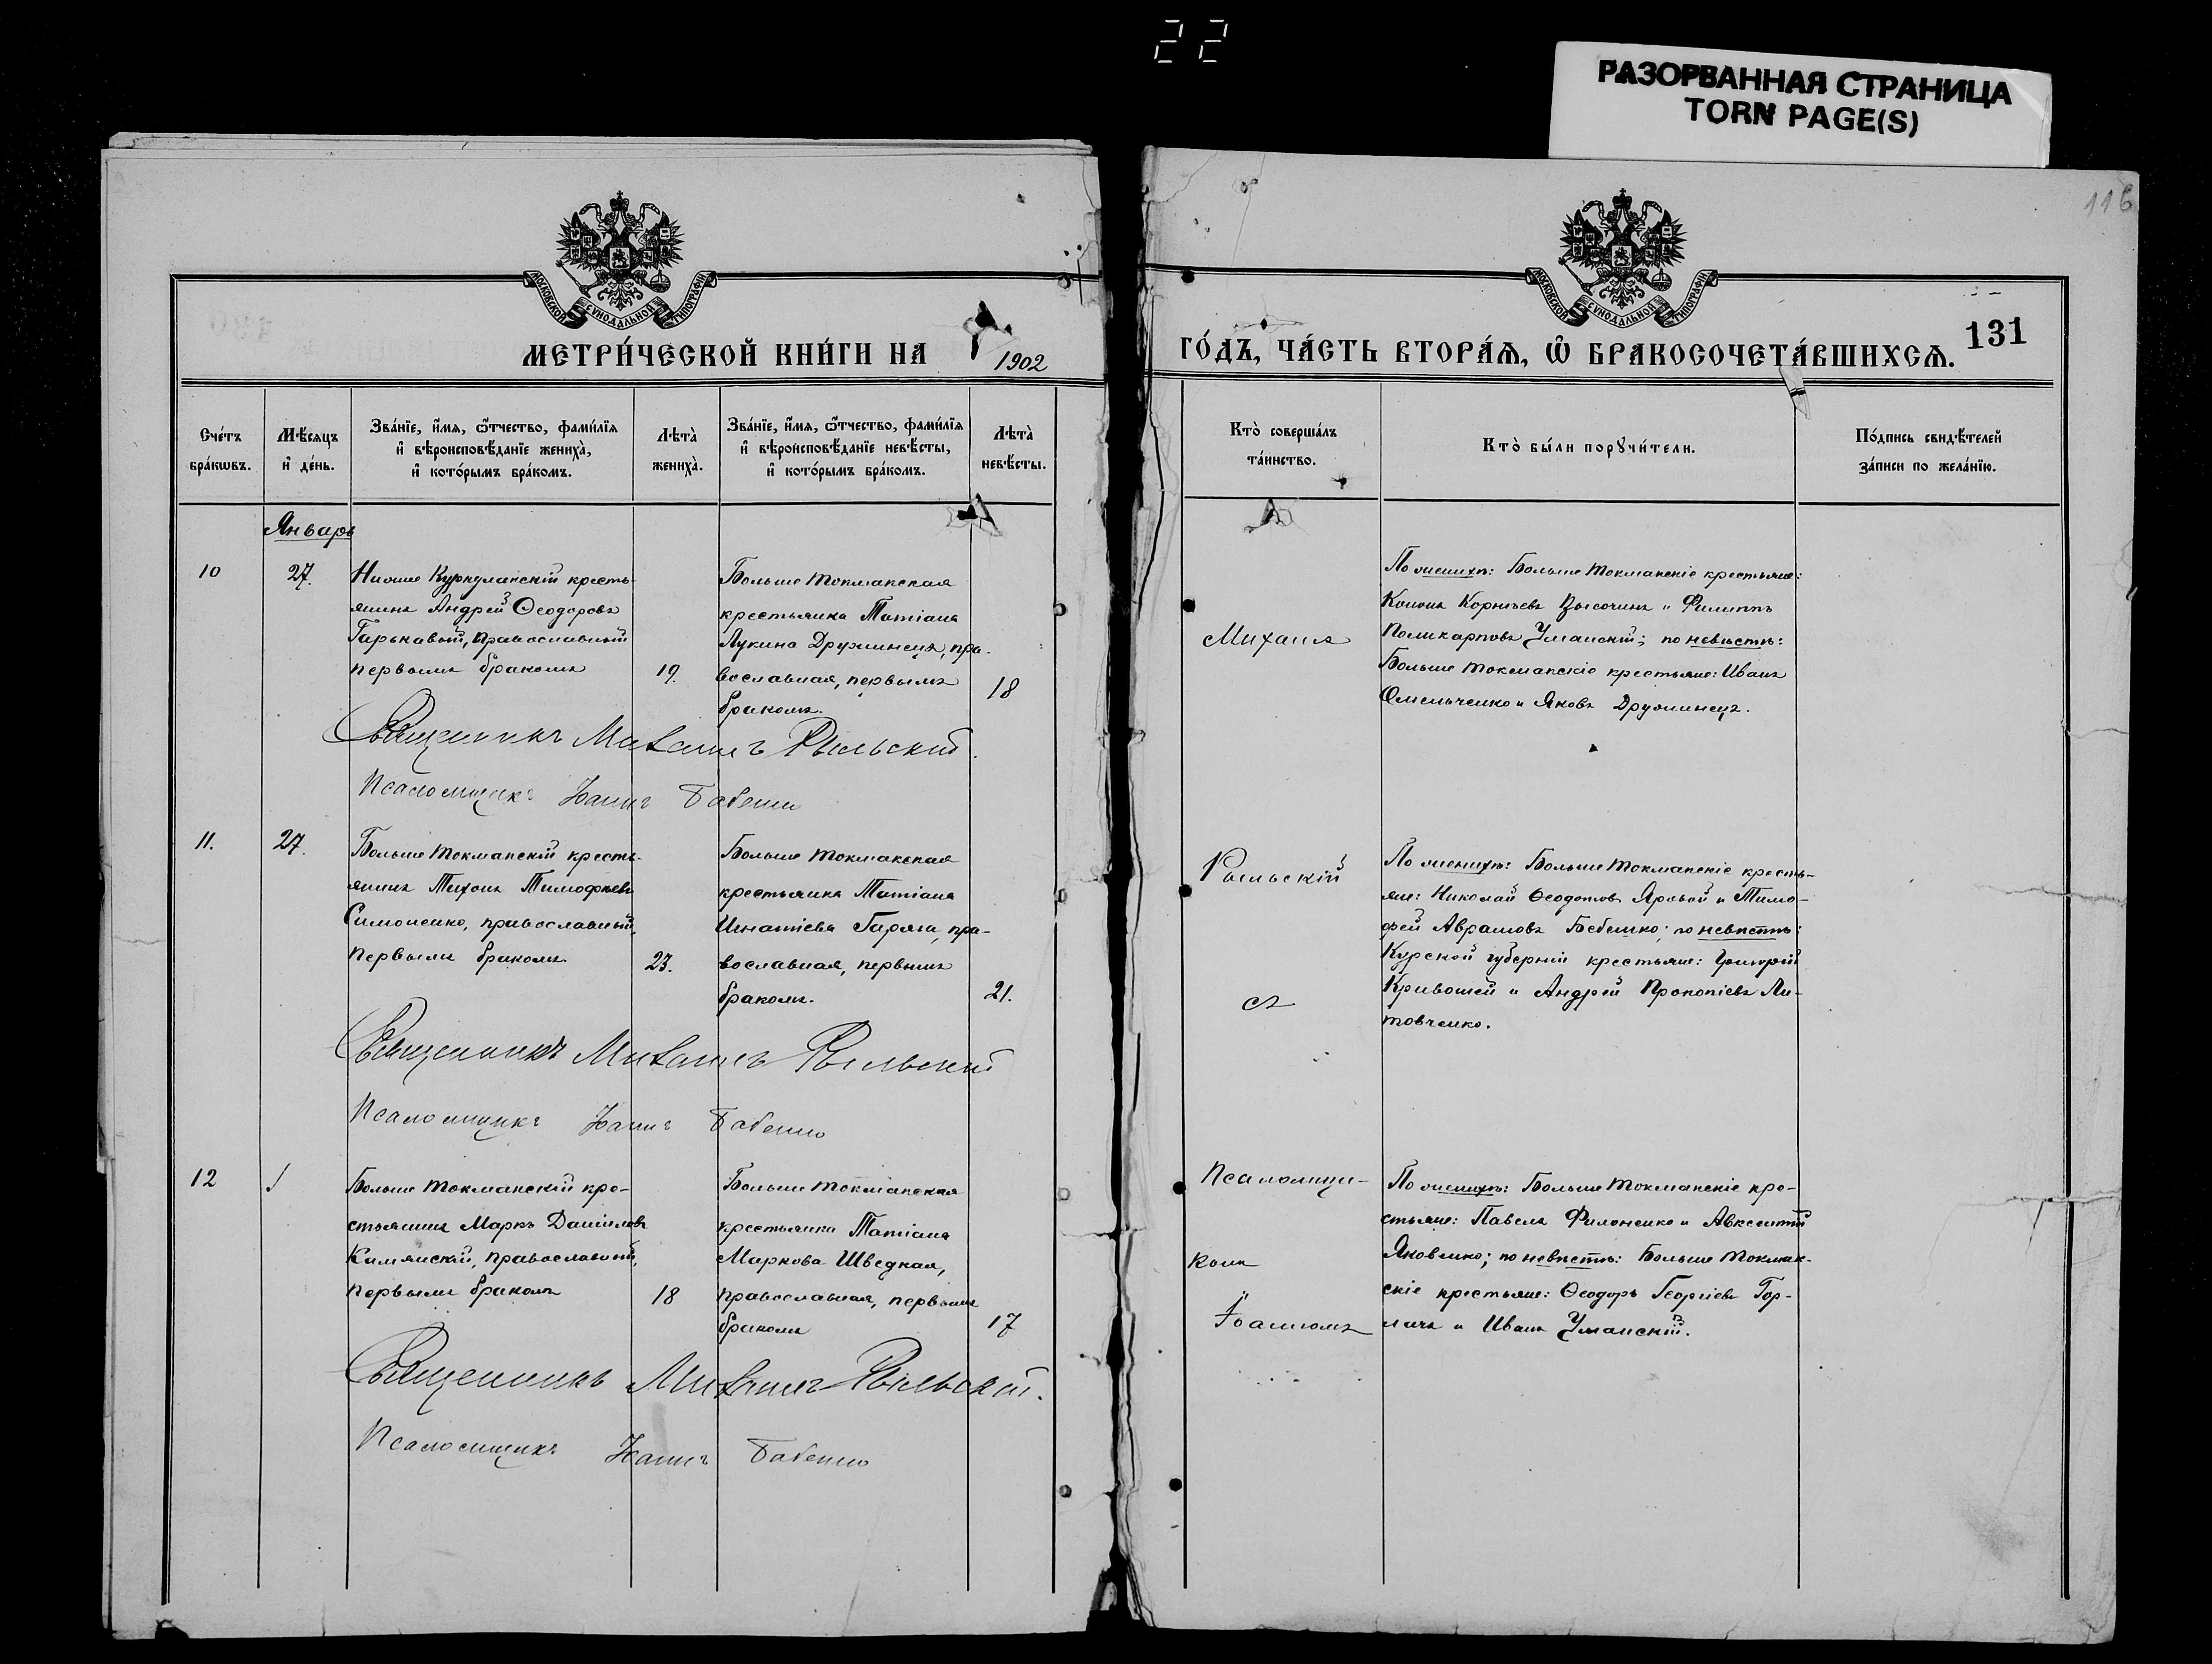 22
РАЗОРВАННАЯ СТРАНИЦА
TORN PAGE(S)
116
МОСКОВСКОЙ СѴНОДАЛЬНОЙ ТИПОГРАФІИ
МОСКОВСКОЙ СѴНОДАЛЬНОЙ ТИПОГРАФІИ
МЕТРИ́ЧЕСКОЙ КНИ́ГИ НА 1902
ГО́ДЪ, ЧА́СТЬ ВТОРА́Ѧ, Ѽ БРАКОСОЧЕТА́ВШИХСѦ.
131
Сче́тъ бра́кѡвъ.
Мѣ́сяцъ и҆ де́нь.
Зва́нїе, и҆́мя, ѻ҆́тчество, фами́лїя и҆ вѣроисповѣ́данїе жениха̀, и҆ кото́рымъ бра́комъ.
Лѣ́та̀ жениха̀.
Зва́нїе, и҆́мя, ѻ҆́тчество, фами́лїя и҆ вѣроисповѣ́данїе невѣ́сты, и҆ кото́рымъ бра́комъ.
Лѣ́та̀ невѣ́сты.
Кто̀ соверша́лъ та́инство.
Кто̀ бы́ли порꙋчи́тели.
По́дпись свидѣ́телей за́писи по жела́нїю.
Январь
10
27.
крестьянинъ Андрей Ѳеодоровъ
Гарькавый, православный
первымъ бракомъ
19.
Больше Токмакская
крестьянка Татіана
Лукина Дружинецъ, пра-
вославная, первымъ
бракомъ.
18
Михаилъ
По женихѣ: Больше Токмакскіе крестьяне:
Корнѣевъ Высочинъ и Филиппъ
Поликарповъ Уманскій; по невѣстѣ:
Больше Токмакскіе крестьяне: Иванъ
Омельченко и Яковъ Дружинецъ.
Священникъ Михаилъ Рыльский.
Псаломщикъ Іоаннъ Бабенко
11.
27.
Больше Токмакскій кресть-
янинъ Тихонъ Тимофѣевъ
Симоненко, православный,
первымъ бракомъ
23.
Больше Токмакская
крестьянка Татіана
Игнатіева Гаряга, пра-
вославная, первымъ
бракомъ.
21.
Рыльскій
съ
По женихѣ: Больше Токмакскіе кресть-
яне: Николай Ѳеодотовъ Яровой и Тимо-
фей Аврамовъ Бебешко; по невѣстѣ:
Курской губерніи крестьяне: Григорій
Кривошей и Андрей Прокопіевъ Ли-
товченко.
Священникъ Михаилъ Рыльский
Псаломщикъ Іоаннъ Бабенко
12
Больше Токмакскій кре-
стьянинъ Маркъ Даніиловъ
православный,
первымъ бракомъ
18
Больше Токмакская
крестьянка Татіана
Маркова Шведкая,
православная, первымъ
бракомъ
17
Псаломщи-
комъ
Іоанномъ
По женихѣ: Больше Токмакскіе кре-
стьяне: Павелъ Филоненко и Авксентій
Яковенко; по невѣстѣ: Больше Токмак-
скіе крестьяне: Ѳеодоръ Георгіевъ Гор-
лачъ и Иванъ Уманскій.
Священникъ Михаилъ Рыльский.
Псаломщикъ Іоаннъ Бабенко